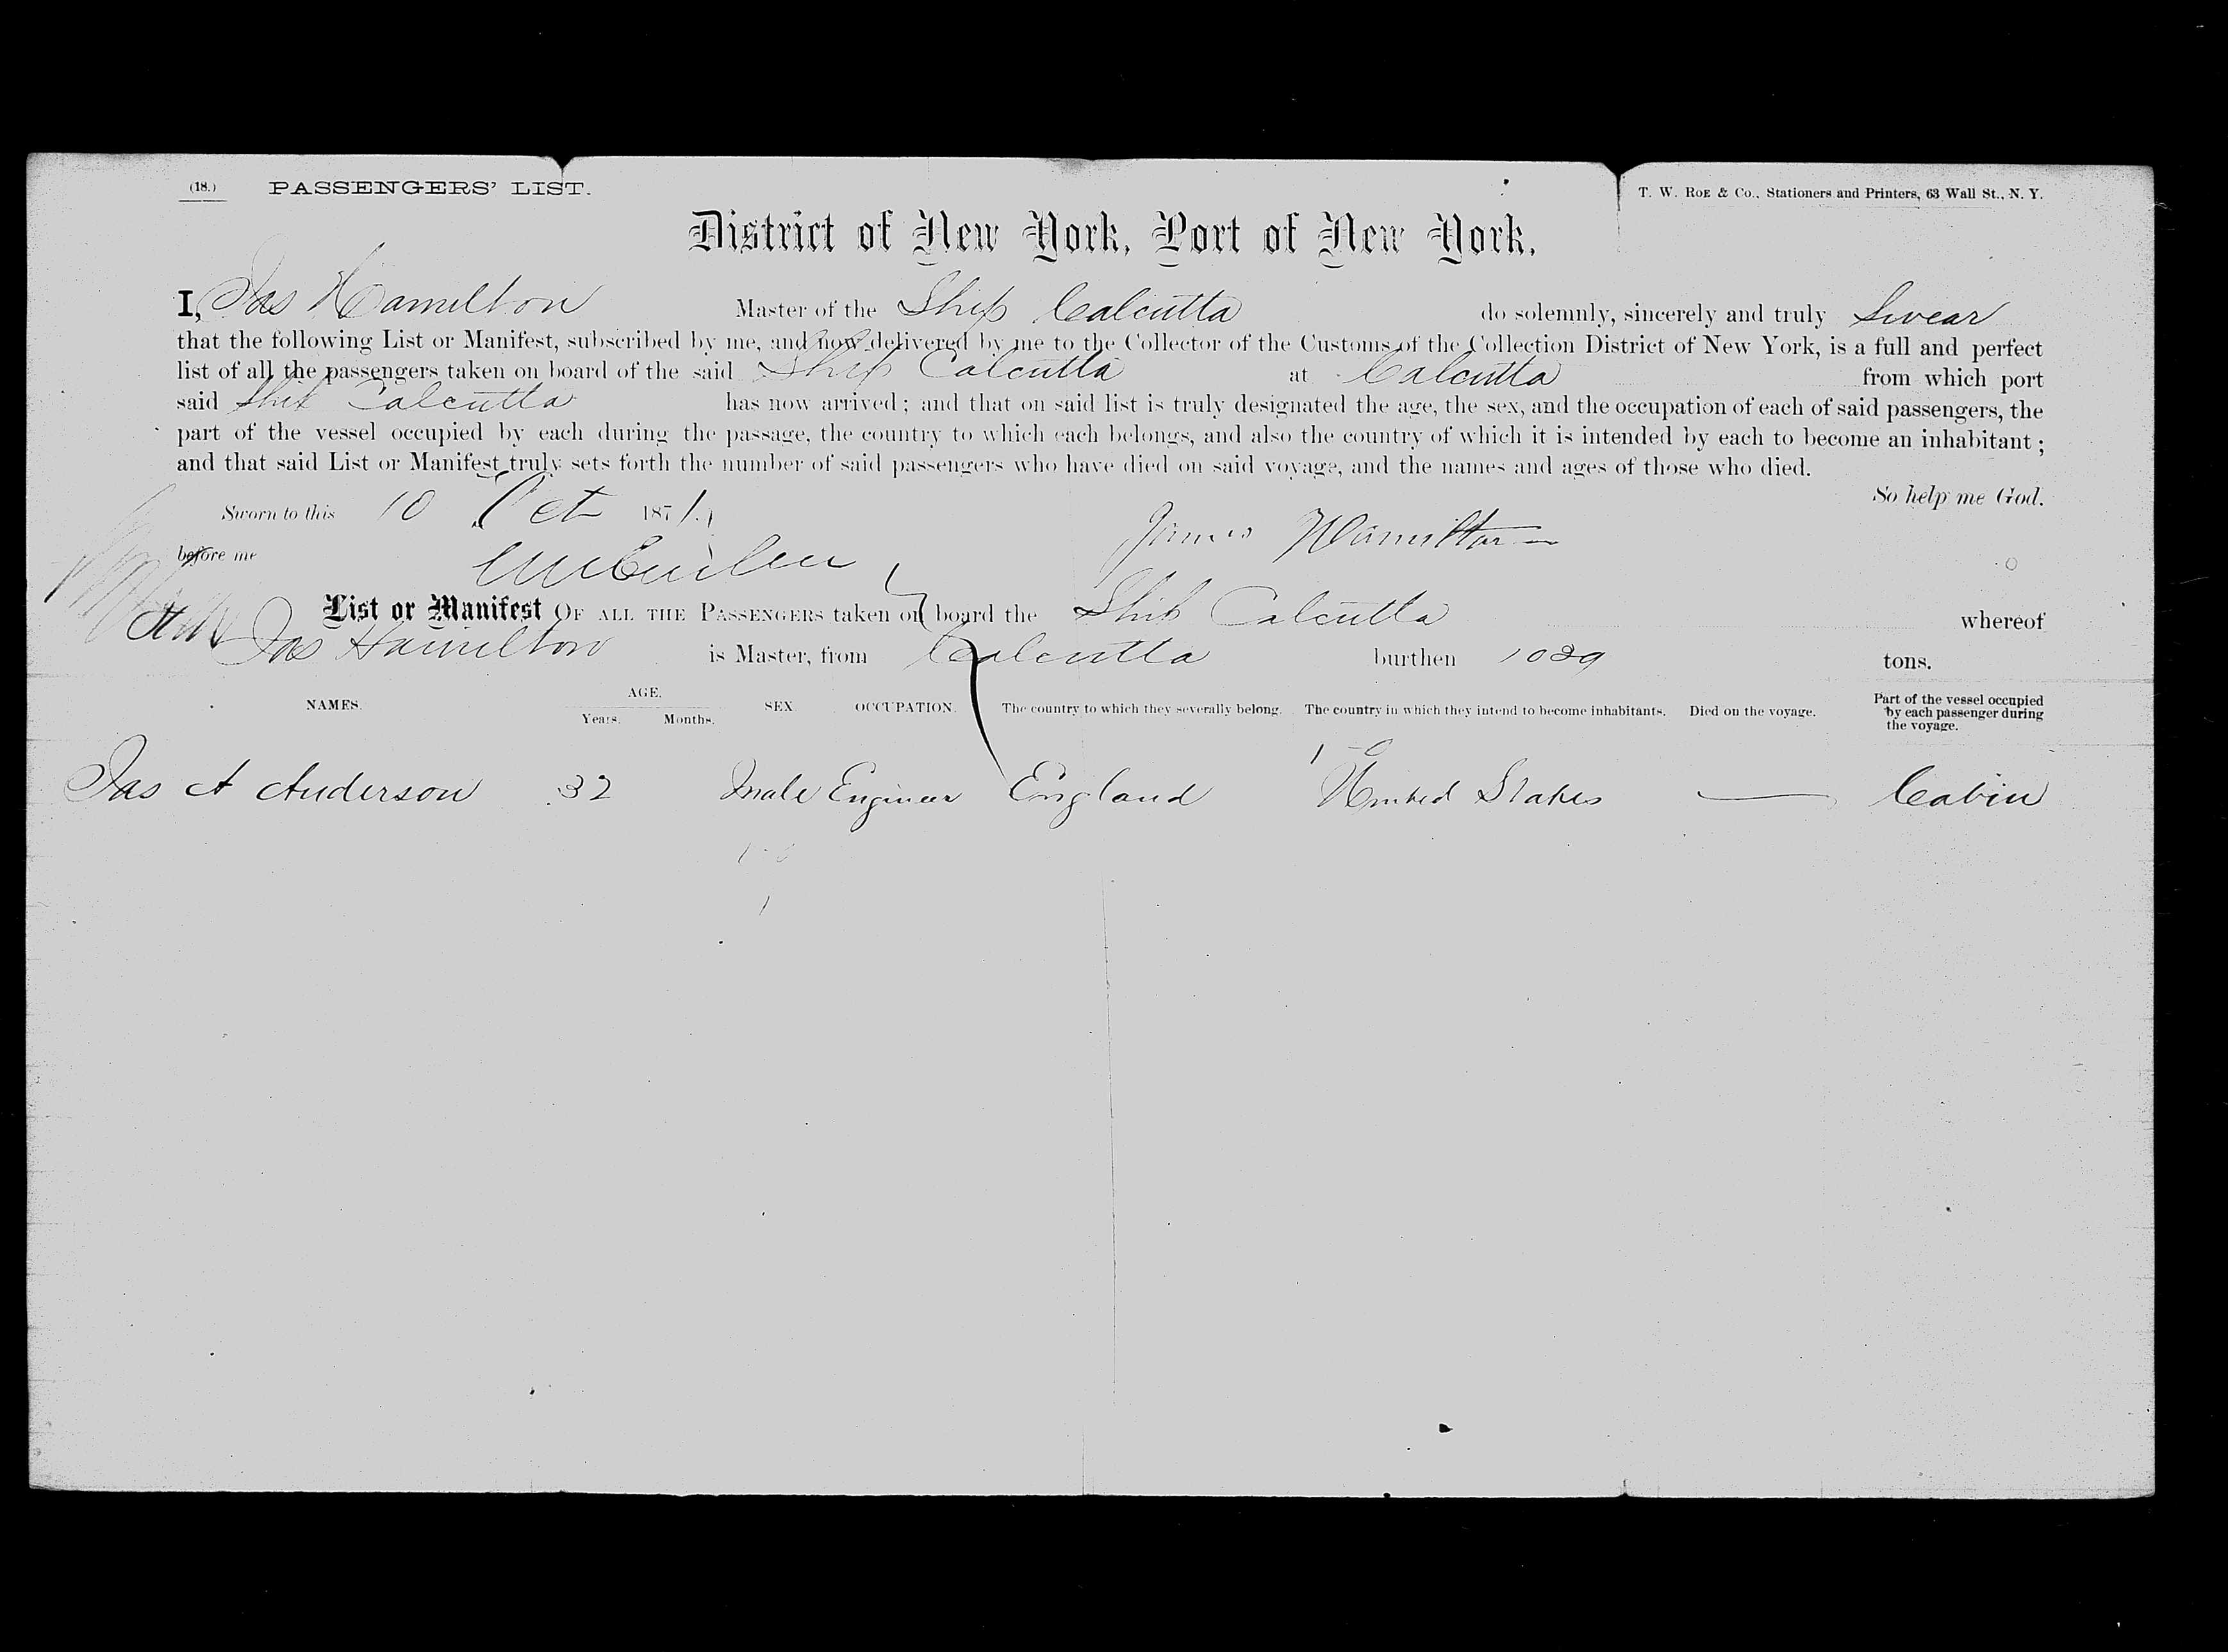 (18.) PASSENGERS' LIST. T. W. ROE & Co., Stationers and Printers, 63 Wall St., N. Y.
District of New York, Port of New York.
I, Jas Hamilton Master of the Ship Calcutta do solemnly, sincerely and truly Swear
that the following List or Manifest, subscribed by me, and now delivered by me to the Collector of the Customs of the Collection District of New York, is a full and perfect
list of all the passengers taken on board of the said Ship Calcutta at Calcutta from which port
said Ship Calcutta has now arrived; and that on said list is truly designated the age, the sex, and the occupation of each of said passengers, the
part of the vessel occupied by each during the passage, the country to which each belongs, and also the country of which it is intended by each to become an inhabitant;
and that said List or Manifest truly sets forth the number of said passengers who have died on said voyage, and the names and ages of those who died.
So help me God.
Sworn to this 10 Oct 1871.
James Hamilton
before me
List or Manifest OF ALL THE PASSENGERS taken on board the Ship Calcutta whereof
Jas Hamilton is Master, from Calcutta burthen 1089 tons.
NAMES. AGE. Years. Months. SEX OCCUPATION. The country to which they severally belong. The country in which they intend to become inhabitants. Died on the voyage. Part of the vessel occupied by each passenger during the voyage.
Jas A Anderson 32 Male Engineer England United States — Cabin